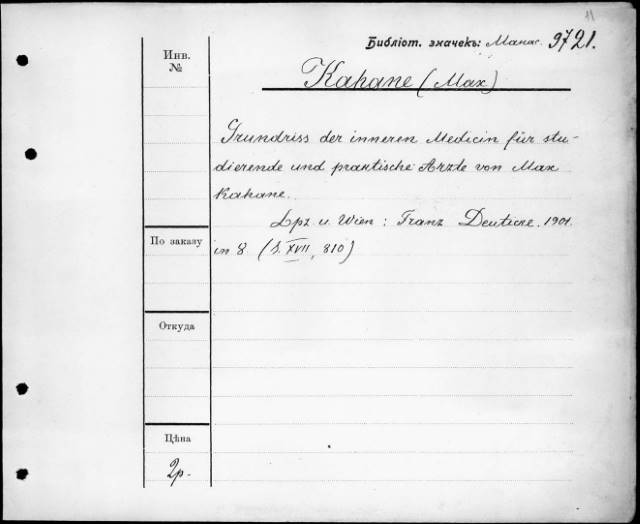 11
Библіот. значекъ: Манас. 9721.
Инв.
№
Kahane (Max)
Grundriss der inneren Medicin für stu-
dierende und praktische Ärzte von Max
Kahane.
Lpz u. Wien : Franz Deuticke. 1901.
По заказу
in 8 (S. XVII, 810)
Откуда
Цѣна
2р.